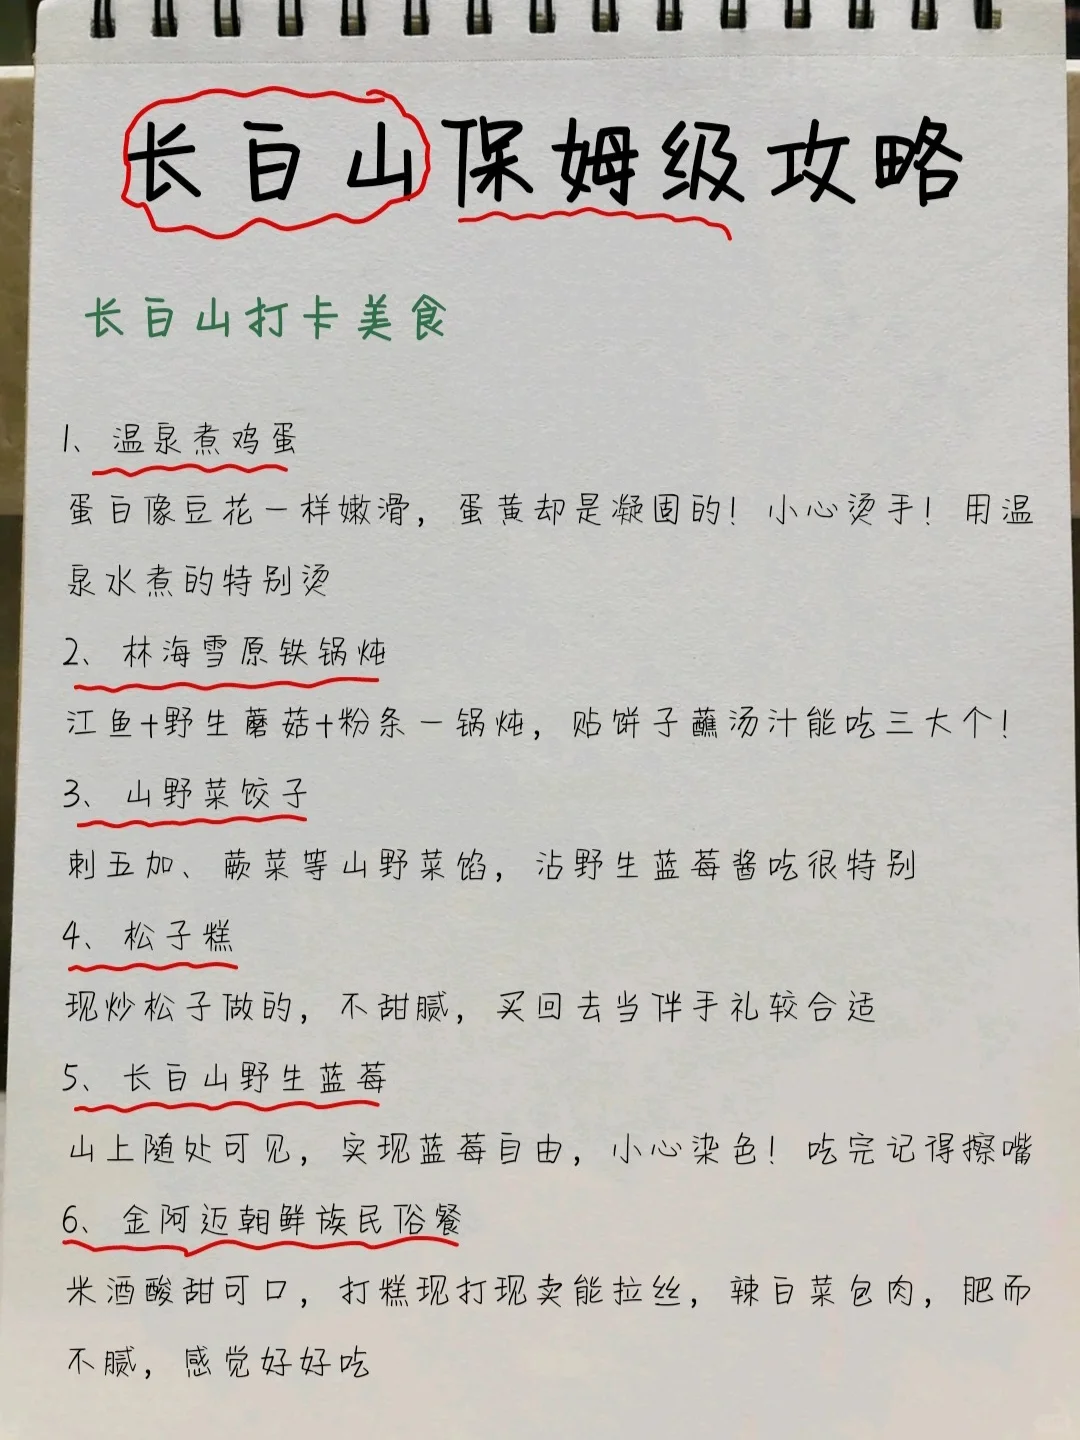 长白山保姆级攻略
长白山打卡美食
1、温泉煮鸡蛋
蛋白像豆花一样嫩滑，蛋黄却是凝固的！小心烫手！用温
泉水煮的特别烫
2、林海雪原铁锅炖
江鱼+野生蘑菇+粉条一锅炖，贴饼子蘸汤汁能吃三大个！
3、山野菜饺子
刺五加、蕨菜等山野菜馅，沾野生蓝莓酱吃很特别
4、松子糕
现炒松子做的，不甜腻，买回去当伴手礼较合适
5、长白山野生蓝莓
山上随处可见，实现蓝莓自由，小心染色！吃完记得擦嘴
6、金阿迈朝鲜族民俗餐
米酒酸甜可口，打糕现打现卖能拉丝，辣白菜包肉，肥而
不腻，感觉好好吃